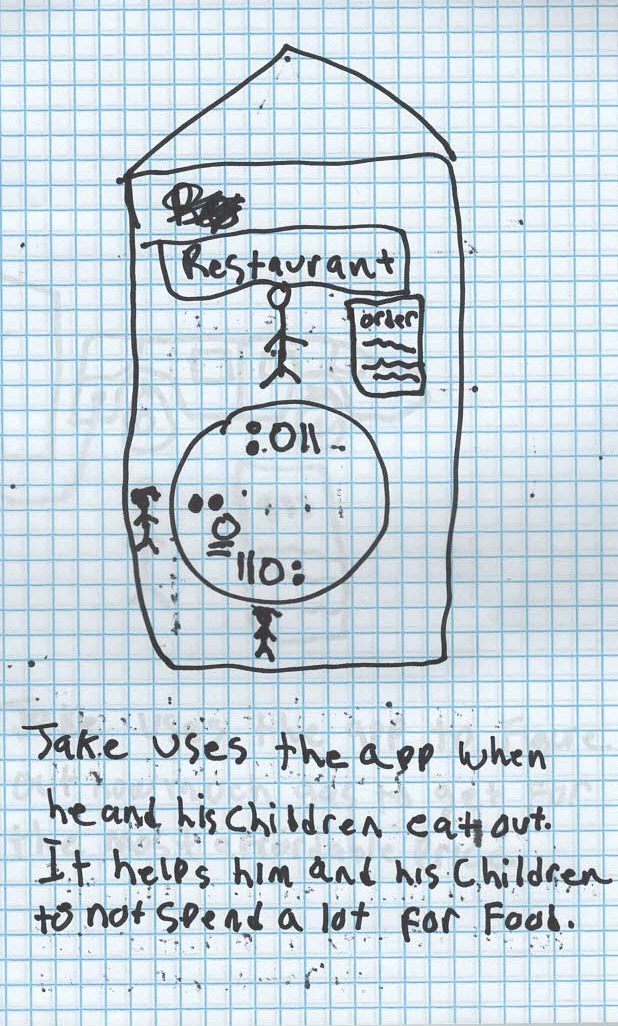 Restaurant
order
Jake uses the app when
he and his children eat out.
It helps him and his Children
to not spend a lot for Food.